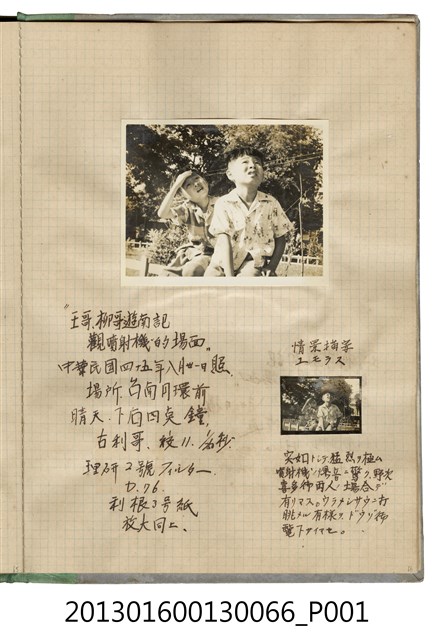 "王哥、柳哥遊南記
觀噴射機的場面。
中華民国四十五年八月廿一日照
場所、台南月環前
晴天、下后四点鐘、
古利哥、絞11.
理研2號フィルター
D.76.
利根3号紙
放大同上、
情景描写
ユモラス
突如トシテ猛烈ヲ極ム
噴射機ノ爆音ニ驚ク、野次
喜多御両人ノ場合デ
有リマス。ウラメシサウニ打
眺メル有様ヲ、ドウゾ御
覧下サイマセ。
201301600130066_P001